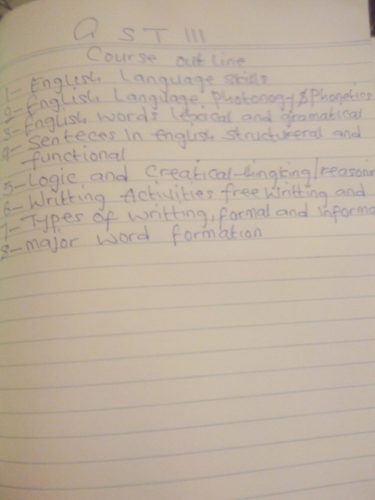 G ST 111
Course out line
1- English Language skills
2- English Language, Photonogy & Phonetics
3- English words lexical and gramatical
4- Senteces in english structureral and
functional
5- Logic and Creatical-thingking/reasonin
6- Writting Activities free writting and
7- Types of writting, formal and informa
8- major word formation